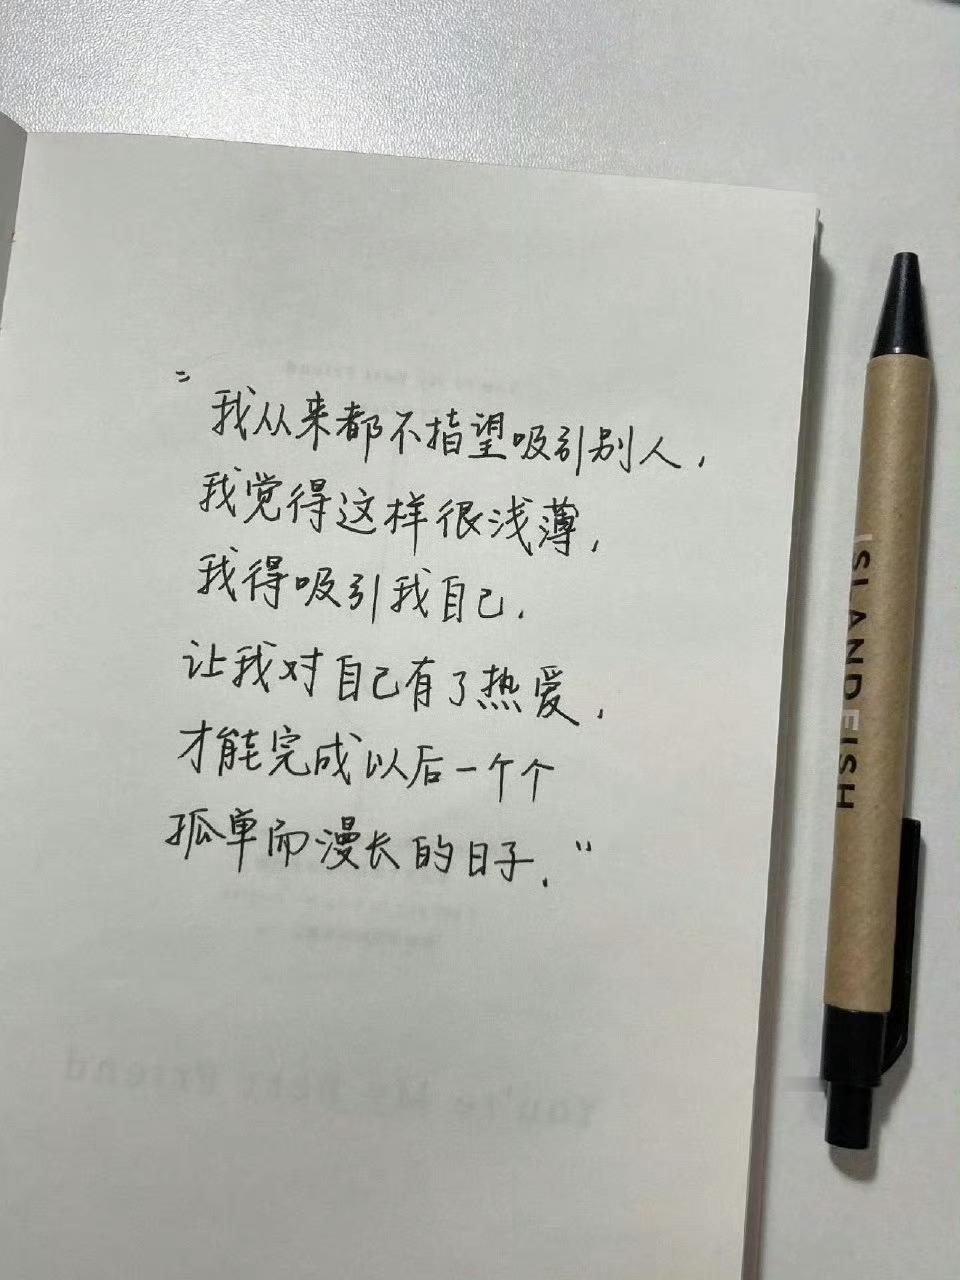 "我从来都不指望吸引别人，
我觉得这样很浅薄，
我得吸引我自己．
让我对自己有了热爱，
才能完成以后一个个
孤单而漫长的日子．"
ISLANDFISH
You're My Best Friend